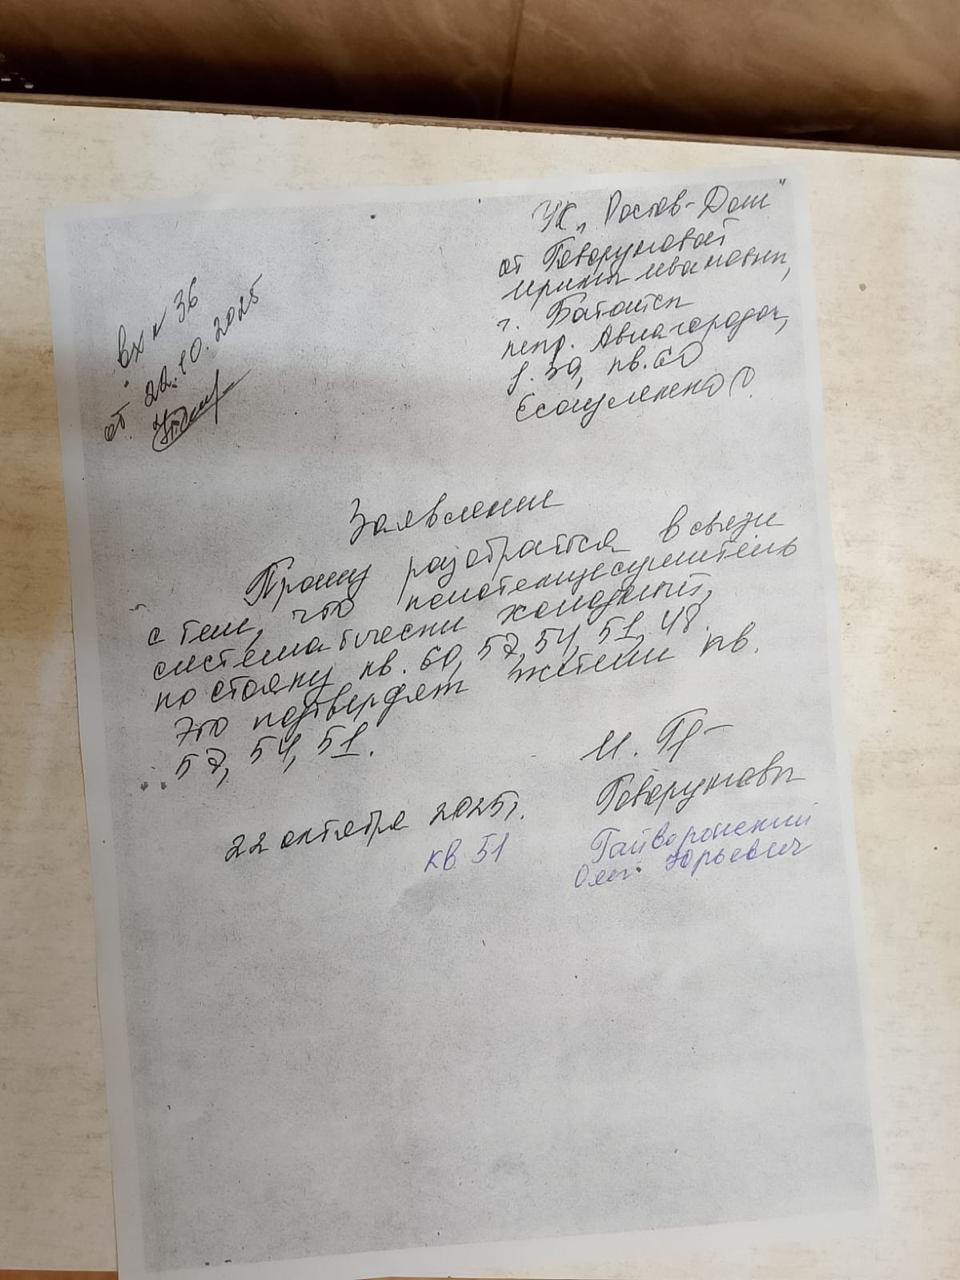 УК „Ростов-Дом"
от Говоруновой
Ирины Ивановны,
г. Батайск
пер. Авиагородок,
д. 39, кв. 60
Есауленко
вх № 36
от 22.10.2025
Заявление
Прошу разобраться в связи
с тем, что полотенцесушитель
систематически холодный,
по стояку кв. 60, 57, 54, 51, 48.
Это подтвердят жители кв.
57, 54, 51.
22 октября 2025 г.
Говорунова
кв 51
Гайворонский
Олег Юрьевич